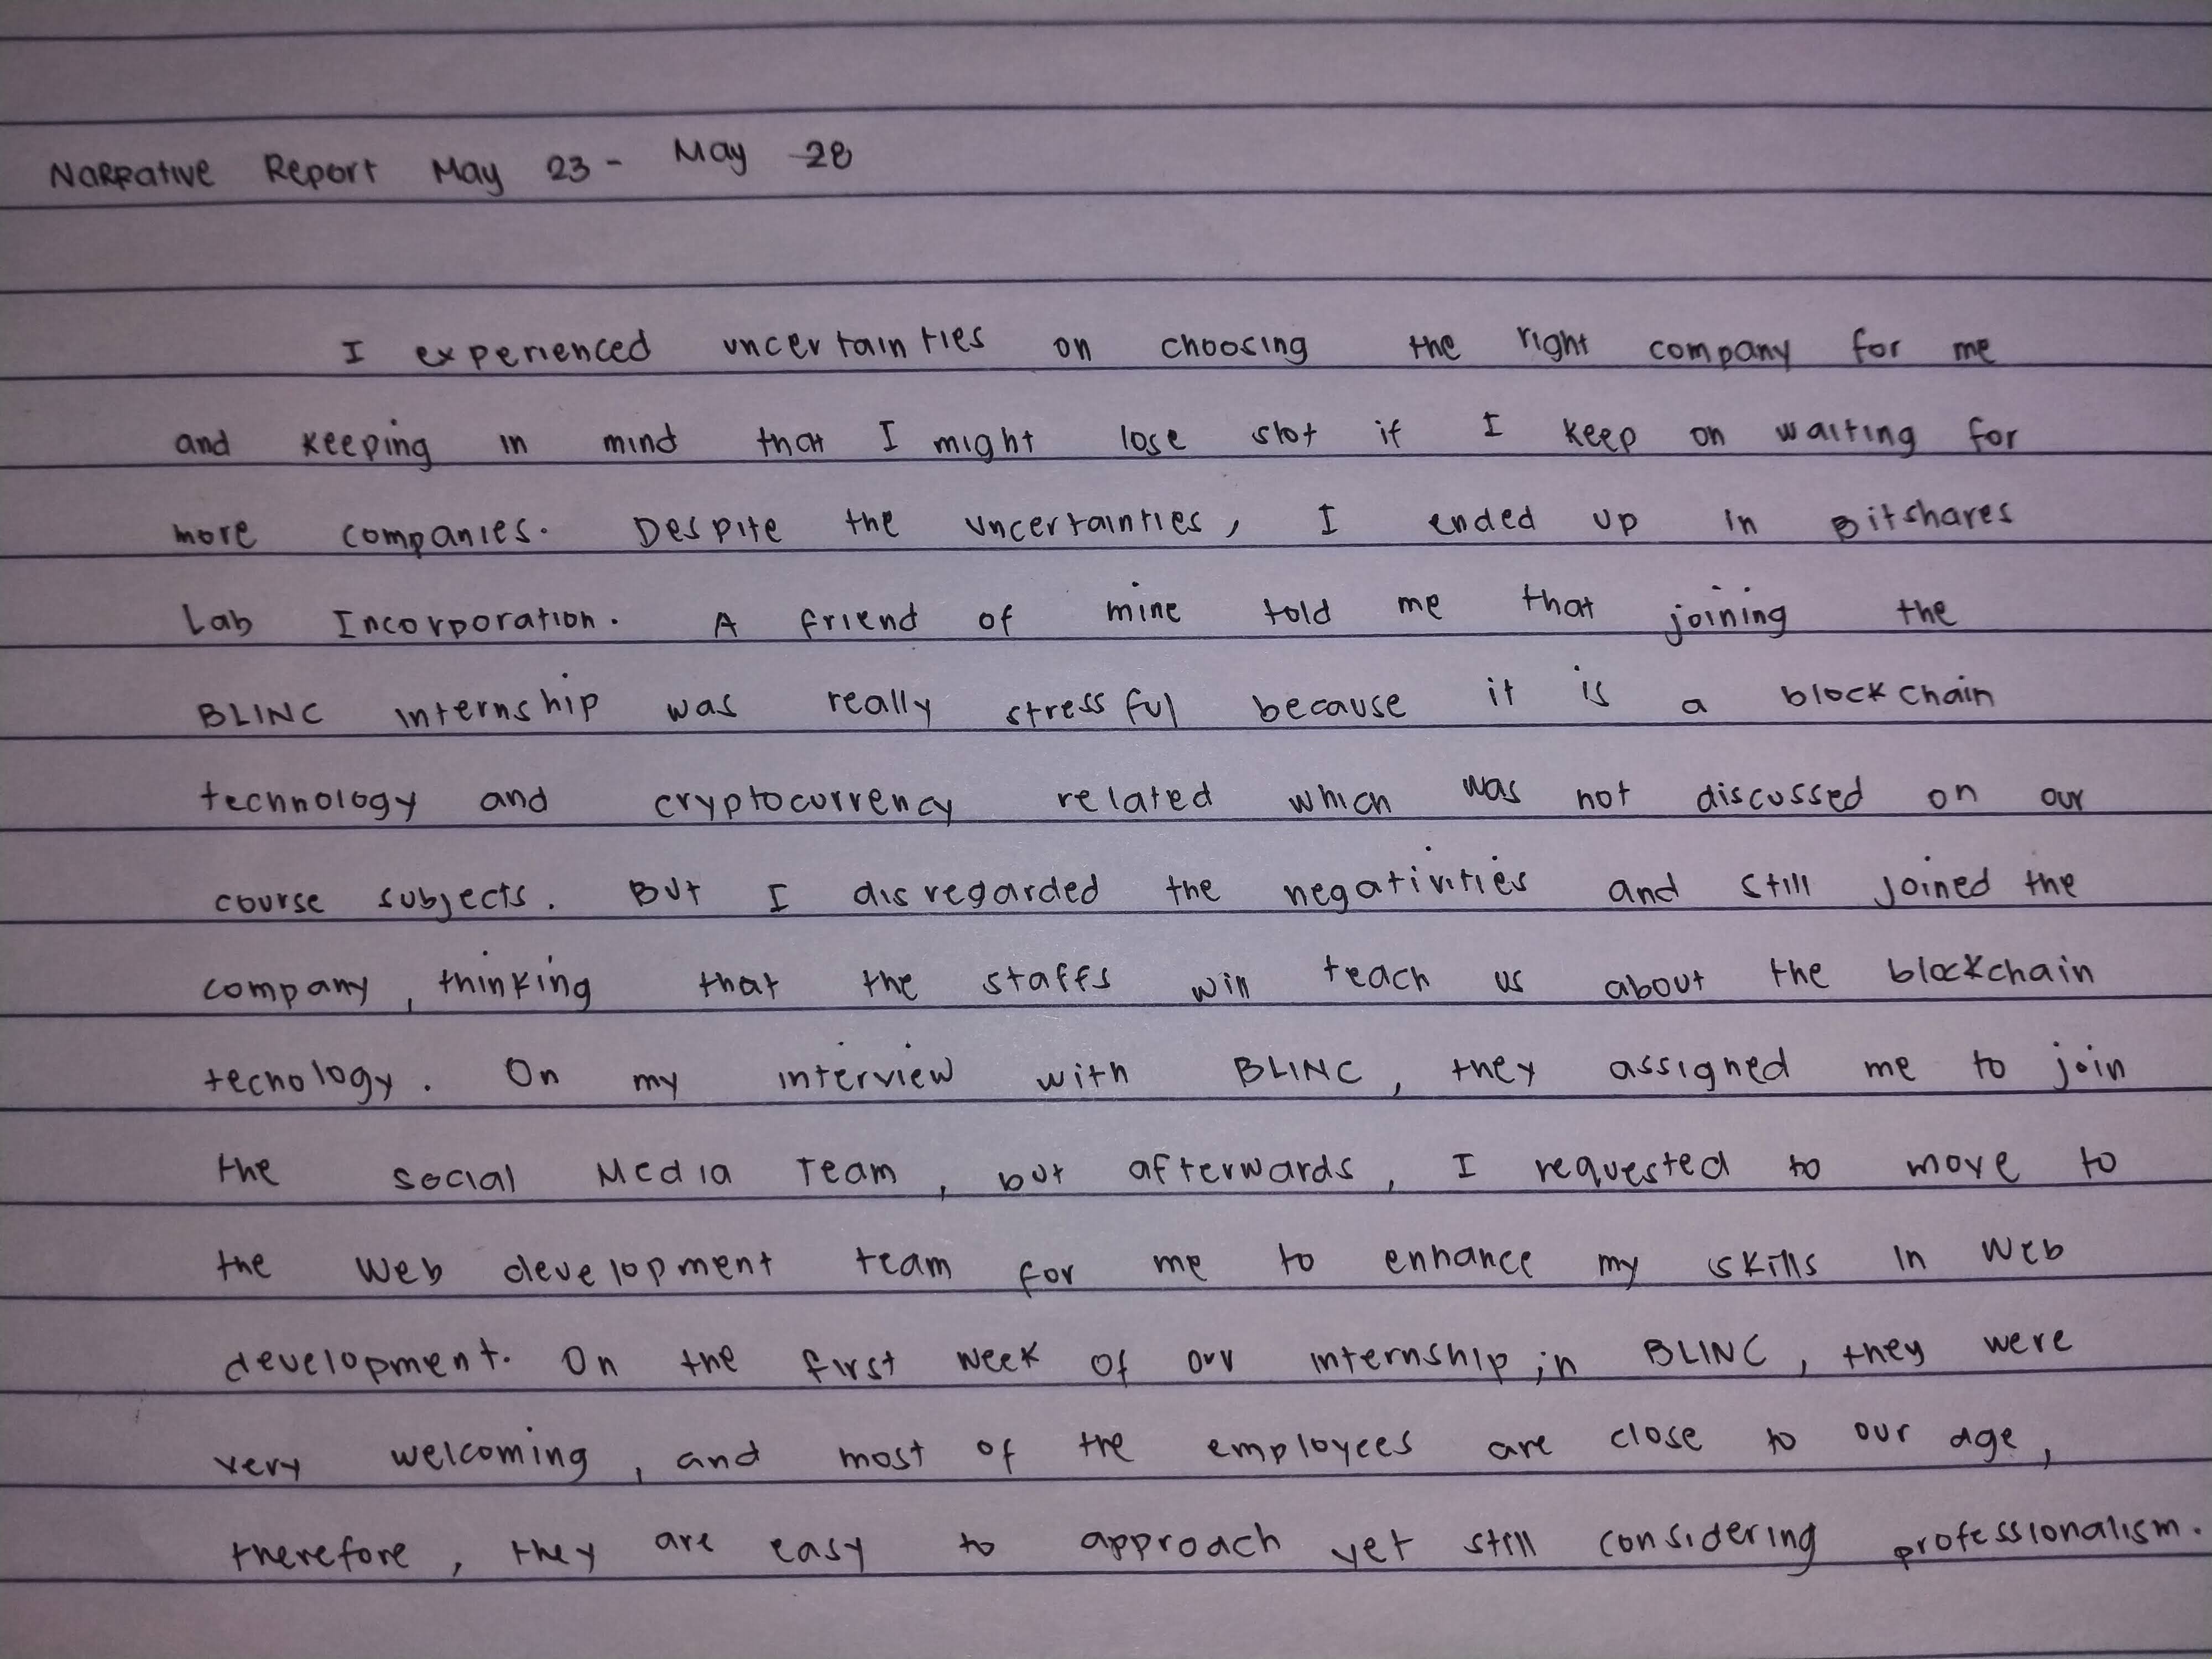 Narrative Report May 23 - May 28
I experienced uncertainties on choosing the right company for me
and keeping in mind that I might lose slot if I keep on waiting for
more companies. Despite the uncertainties, I ended up in Bitshares
Lab Incorporation. A friend of mine told me that joining the
BLINC internship was really stressful because it is a blockchain
technology and cryptocurrency related which was not discussed on our
course subjects. But I disregarded the negativities and still joined the
company, thinking that the staffs will teach us about the blockchain
tecnology. On my interview with BLINC, they assigned me to join
the social Media Team, but afterwards, I requested to move to
the Web development team for me to enhance my skills in Web
development. On the first week of our internship in BLINC, they were
very welcoming, and most of the employees are close to our age,
therefore, they are easy to approach yet still considering professionalism.